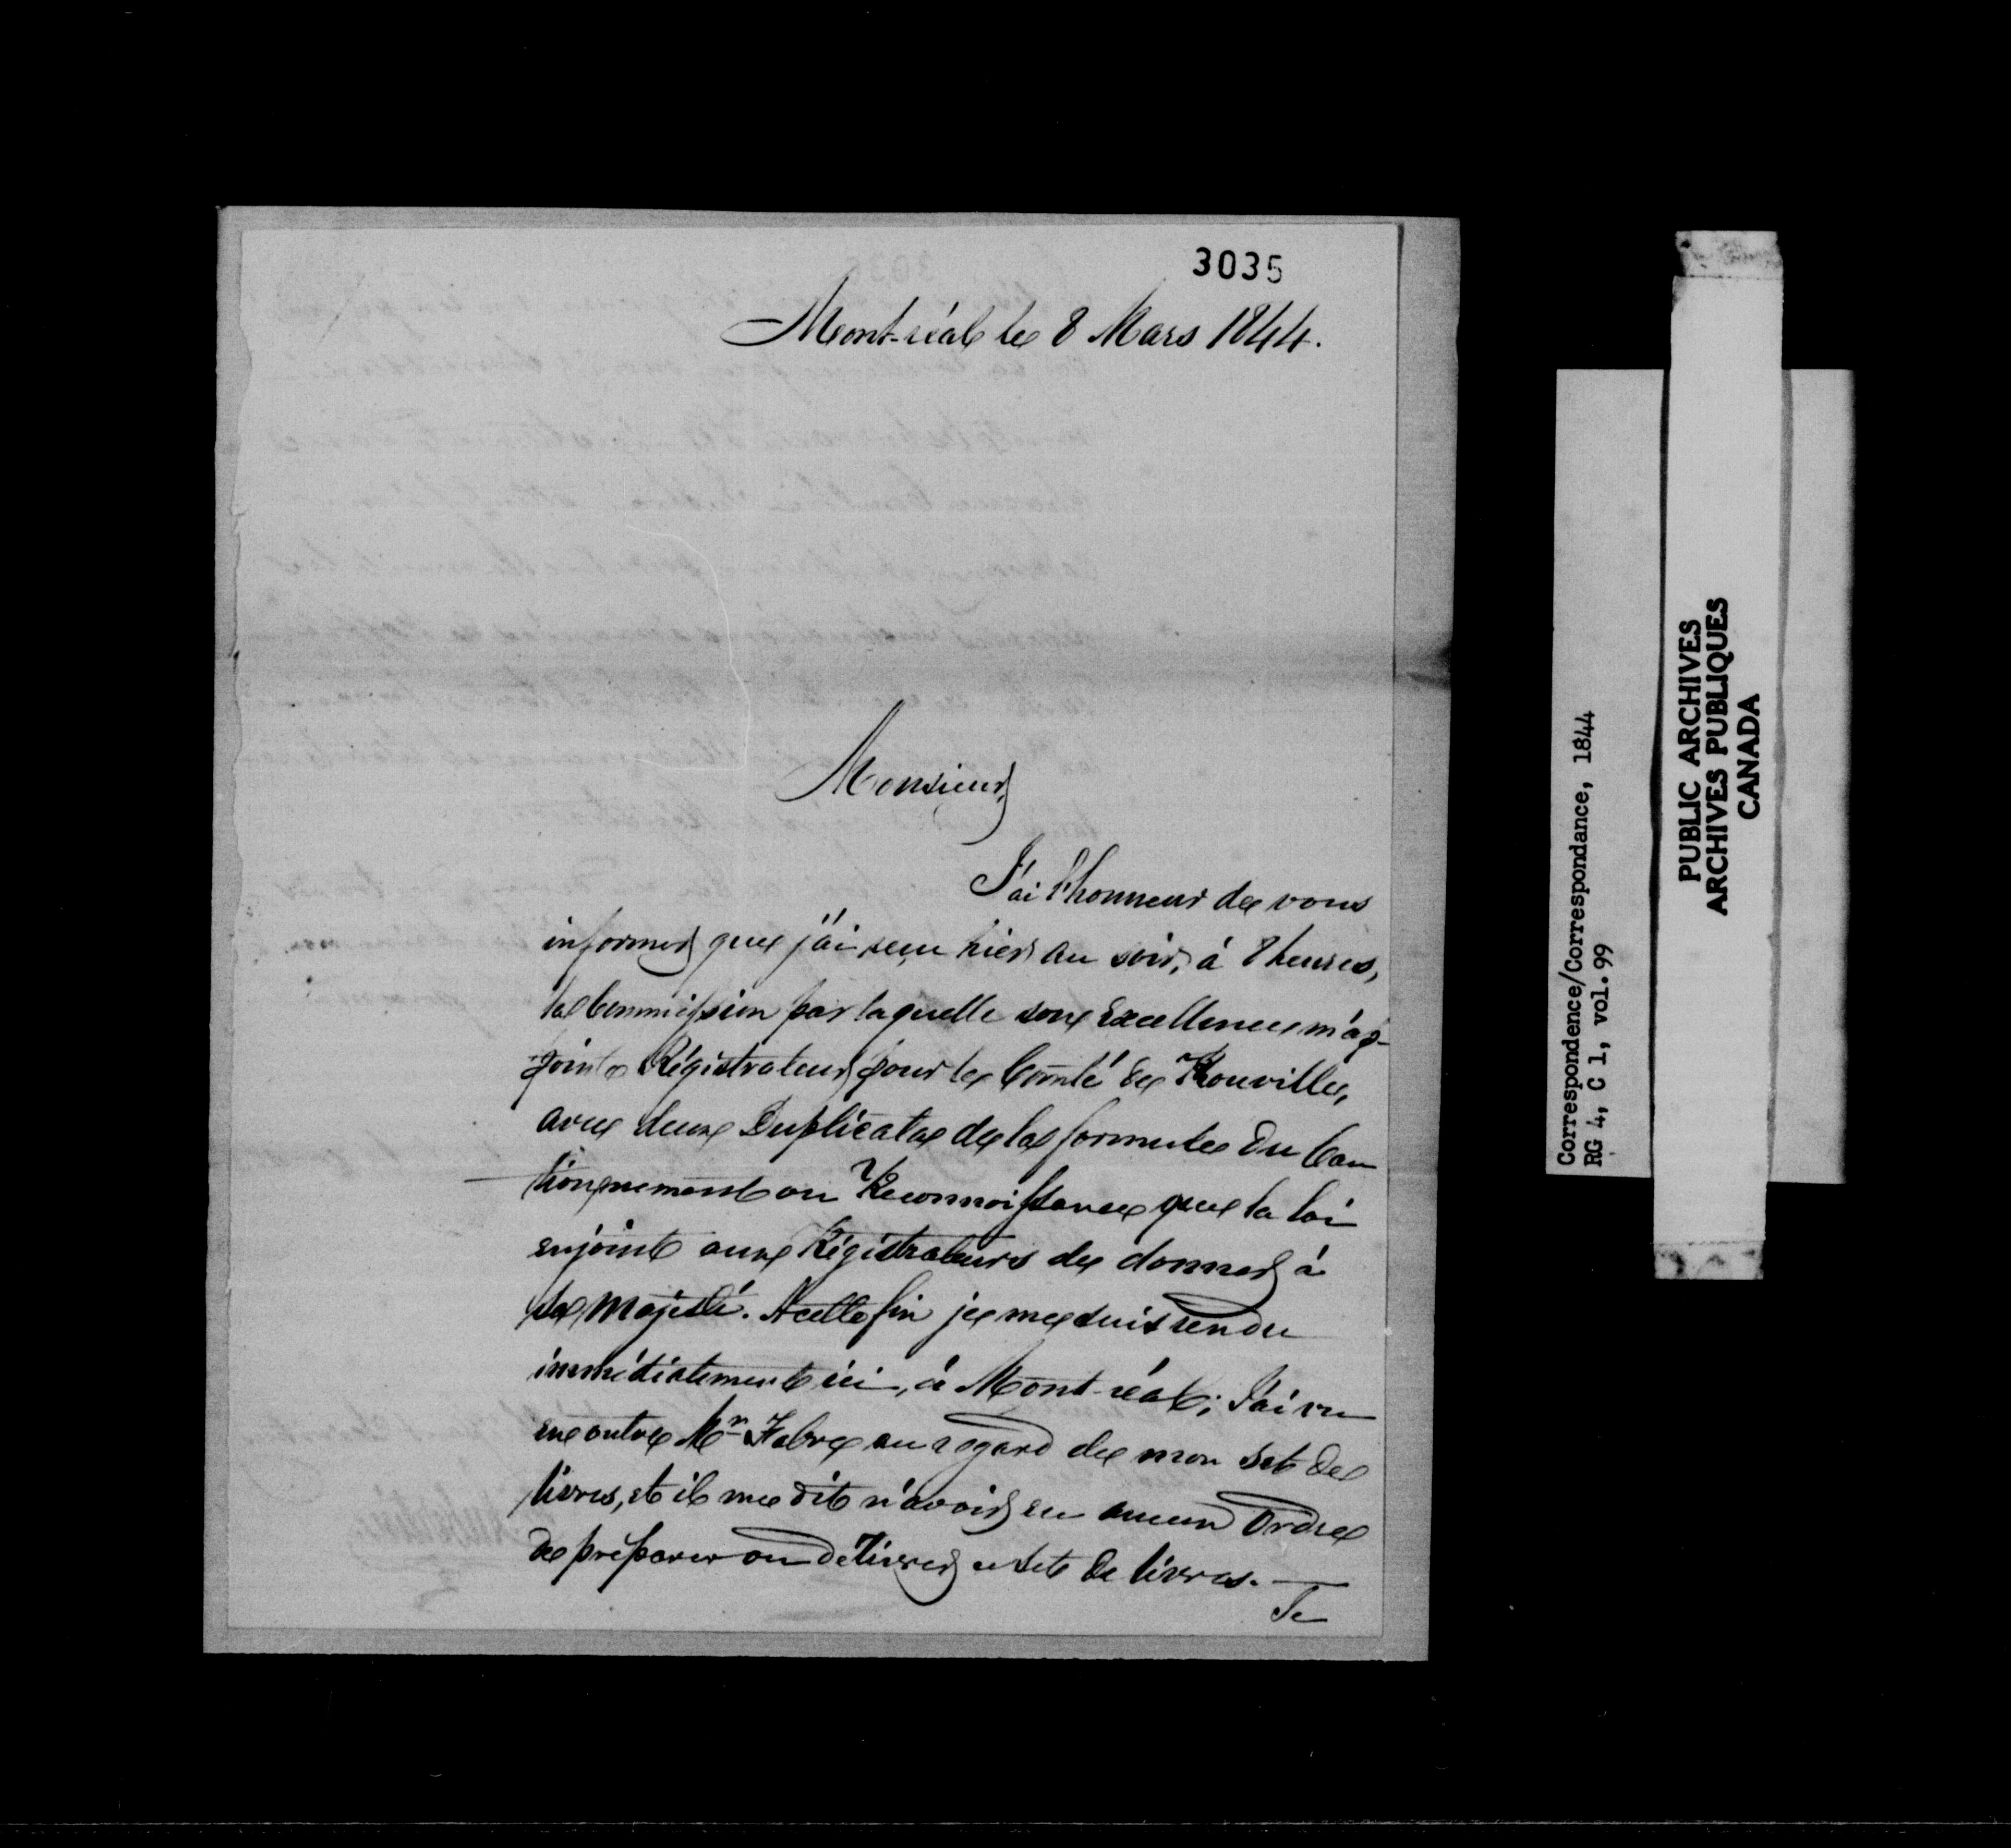 3035
Mont-réal le 8 Mars 1844.
Monsieur,
J'ai l'honneur de vous
informer que j'ai reçu hier au soir, à 8 heures,
la Commission par laquelle son Excellence m'ap-
pointe Régistrateur pour le Comté de Rouville,
avec deux Duplicata de la formule du Cau
tionnement ou Reconnoissance que la loi
enjoint aux Régistrateurs de donner à
Sa Majesté. A cette fin je me suis rendu
immédiatement ici, à Mont-réal; J'ai vu
en outre Mr. Fabre au regard de mon Set de
livres, et il me dit n'avoir eu aucun Ordre
de préparer ou délivrer ce Set de livres. —
Je
Correspondence/Correspondance, 1844
RG 4, C 1, vol. 99
PUBLIC ARCHIVES
ARCHIVES PUBLIQUES
CANADA